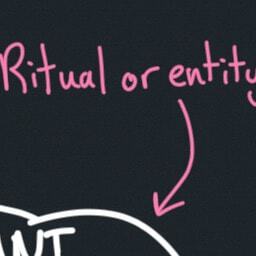 Ritual or entity
ANT